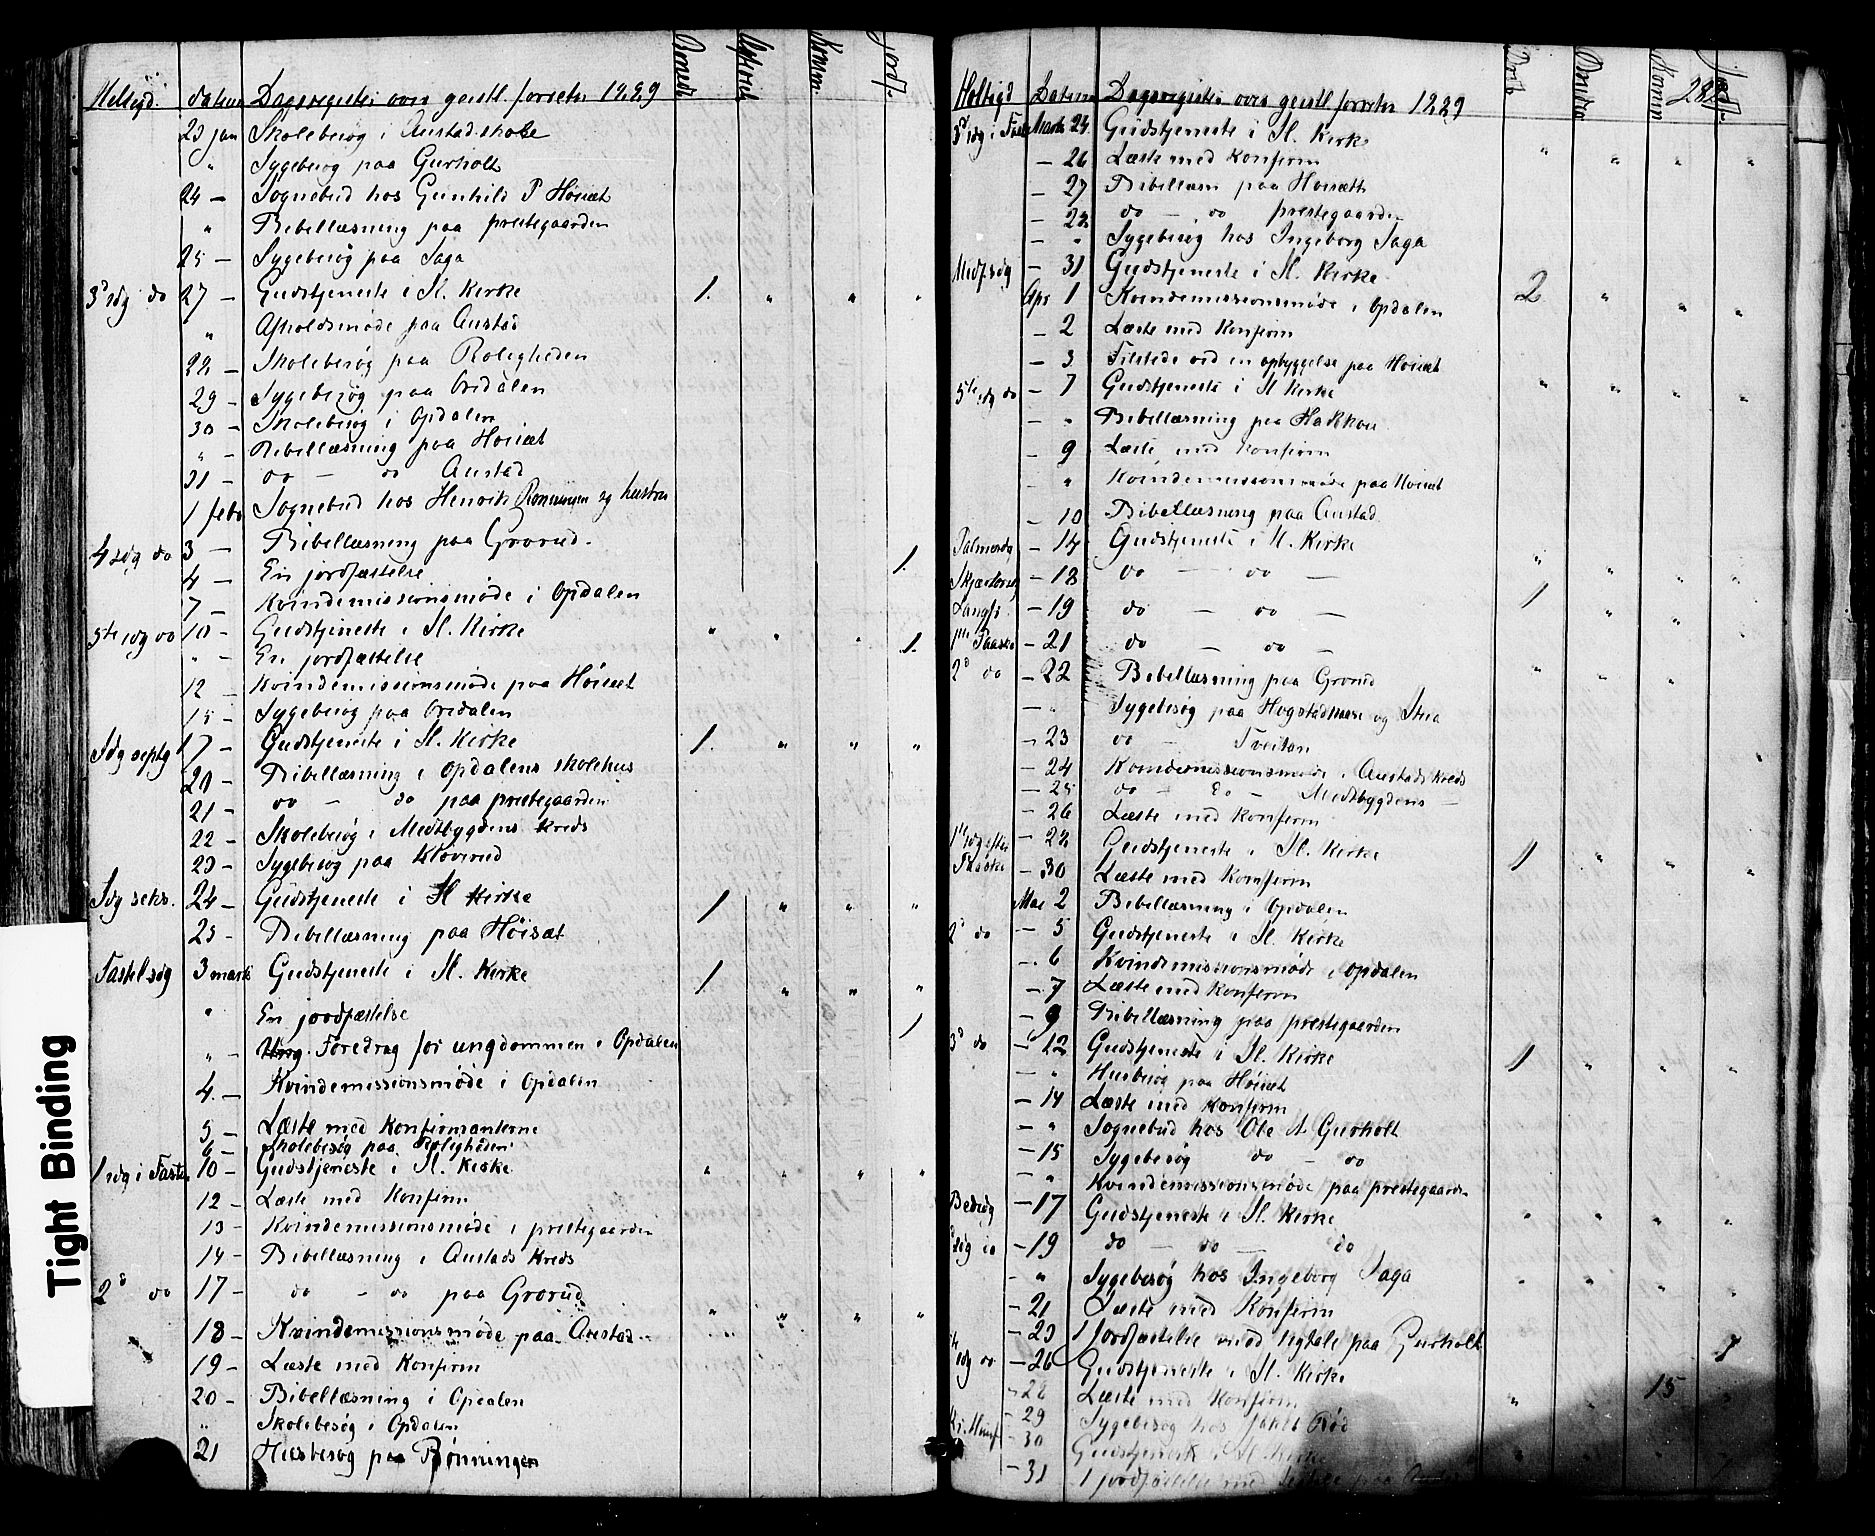 Helligd. datum Dagsregister over geistl forretn 1889 Jordf.
23 jan Skolebesøg i Austad skole
" Sygebesøg paa Gurholt
24 — Sognebud hos Gunhild P Høisæt
" Bibellæsning paa prestegaarden
25 — Sygebesøg paa Saga
3d sdg do 27 — Gudstjeneste i H. Kirke 1. " " "
" Afholdsmøde paa Austad
28 — Skolebesøg paa Roligheden
29 — Sygebesøg paa
30 — Skolebesøg i Opdalen
" — Bibellæsning paa Høisæt
31 — do — do Austad
1 febr Sognebud hos Henrik og hustru
4 sdg do 3 — Bibellæsning paa Grorud. 1.
4 — En jordfæstelse
7 — Kvindemissionsmøde i Opdalen
5te sdg do 10 — Gudstjeneste i H. Kirke " " " 1.
" — En jordfæstelse
12 — Kvindemissionsmøde paa Høisæt
15 — Sygebesøg paa
Sdg septg 17 — Gudstjeneste i H. Kirke 1. " " "
20 — Bibellæsning i Opdalens skolehus
21 — do — do paa prestegaarden
22 — Skolebesøg i Midtbygdens Kreds
23 — Sygebesøg paa Kløverud
Sdg seks. 24 — Gudstjeneste i H Kirke 1 " " "
25 — Bibellæsning paa Høisæt
Fastel.sdg 3 marts Gudstjeneste i H. Kirke 1 " " "
" En jordfæstelse 1
" — Foredrag for ungdommen i Opdalen
4. — Kvindemissionsmøde i Opdalen
5 — Læste med Konfirmanterne
6 — Skolebesøg paa Roligheden
1 sdg i Fasten 10 — Gudstjeneste i H. Kirke " " " "
12 — Læste med Konfirm
13 — Kvindemissionsmøde i prestegaarden
14 — Bibellæsning i Austads Kreds
2d do 17 — do — do paa Grorud " " " "
18 — Kvindemissionsmøde paa Austad
19 — Læste med Konfirm
20 — Bibellæsning i Opdalen
" Skolebesøg i Opdalen
21 Husbesøg paa Rønningen
Helligd Datum Dagsregister over geistl forretn 1889 Konfirm Jordf.
3d sdg i Faste Marts 24 Gudstjeneste i H. Kirke " " " "
— 26 Læste med Konfirm
— 27 Bibellæsn paa Høisæth
— 28 do — do prestegaarden
— " Sygebesøg hos Ingeborg Saga
Midf.sdg — 31 Gudstjeneste i H. Kirke 2 " " "
Apr 1 Kvindemissionsmøde i Opdalen
— 2 Læste med Konfirm
— 3 Tilstede ved en opbyggelse paa Høisæt
5te sdg do — 7 Gudstjeneste i H Kirke " " " "
— " Bibellæsning paa
— 9 Læste med Konfirm
— " Kvindemissionsmøde paa Høisæt
— 10 Bibellæsning paa Austad
Palmesdg — 14 Gudstjeneste i H. Kirke " " " "
Skjærtorsd — 18 do — do — 1 " " "
Langfr. — 19 do — do —
1ste Paaske — 21 do — do — " " "
2d do — 22 Bibellæsning paa Grorud
— " Sygebesøg paa og
— 23 do — Tveitan
— 24 Kvindemissionsmøde i Austads kreds
— 25 do — do — Midtbygdens —
— 26 Læste med Konfirm
1ste sdg efter Paaske — 28 Gudstjeneste i H. Kirke 1 " " "
— 30 Læste med Konfirm
Mai 2 Bibellæsning i Opdalen
2d do — 5 Gudstjeneste i H. Kirke
— 6 Kvindemissionsmøde i Opdalen
— 7 Læste med Konfirm
— 9 Bibellæsning paa prestegaarden
3d do — 12 Gudstjeneste i H. Kirke 1 " " "
— " Husbesøg paa Høisæt
— 14 Læste med Konfirm
— " Sognebud hos Ole A. Gurholt
— 15 Sygebesøg do — do
— " Kvindemissionsmøde paa prestegaarden
Bededg — 17 Gudstjeneste i H. Kirke " " " "
sdg do — 19 do — do — do " " " "
— " Sygebesøg hos Ingeborg Saga
— 21 Læste med Konfirm
— 23 1 Jordfæstelse med ligtale paa Gurholt 1
sdg do — 26 Gudstjeneste i H. Kirke " " 15 "
— 28 Læste med Konfirm
— 29 Sygebesøg hos Jakob Rød
Kr. Himf — 30 Gudstjeneste i H. Kirke
— 31 1 jordfæstelse med ligtale paa 1
Tight Binding